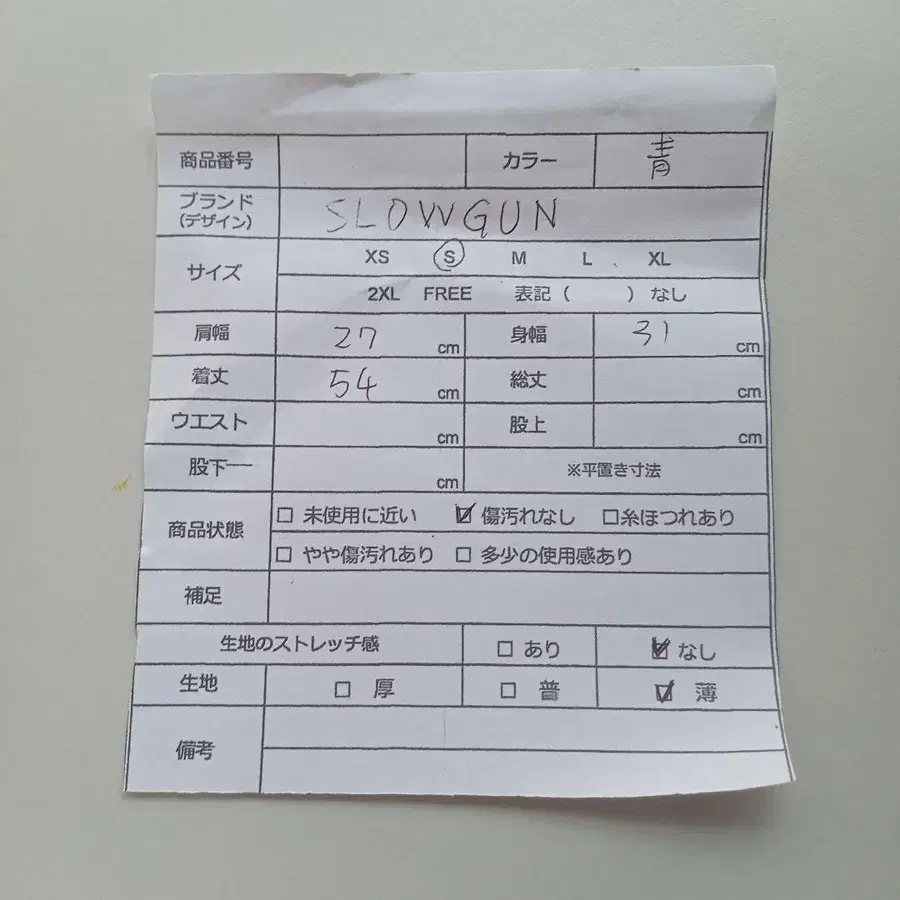 商品番号 カラー 青
ブランド (デザイン) SLOWGUN
サイズ XS S M L XL
2XL FREE 表記 ( ) なし
肩幅 27 cm 身幅 31 cm
着丈 54 cm 総丈 cm
ウエスト cm 股上 cm
股下 cm ※平置き寸法
商品状態 □ 未使用に近い ☑ 傷汚れなし □糸ほつれあり
□ やや傷汚れあり □ 多少の使用感あり
補足
生地のストレッチ感 □ あり ☑ なし
生地 □ 厚 □ 普 ☑ 薄
備考